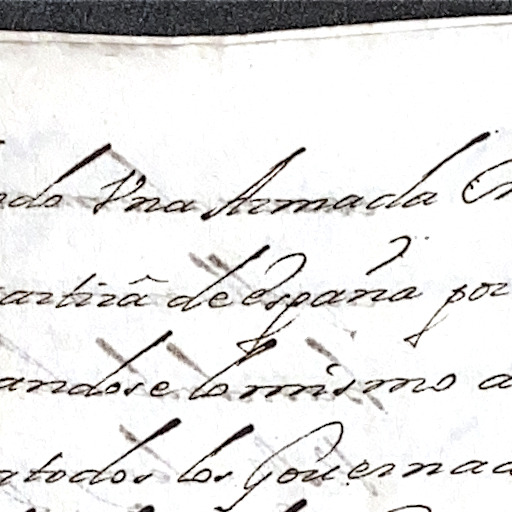 ndo Vna Armada
artirâ de españa por
andose lo mismo a
ntodos los Gouernad